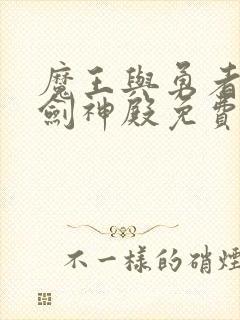 魔王與勇者
劍神殿免費
不一樣的硝煙